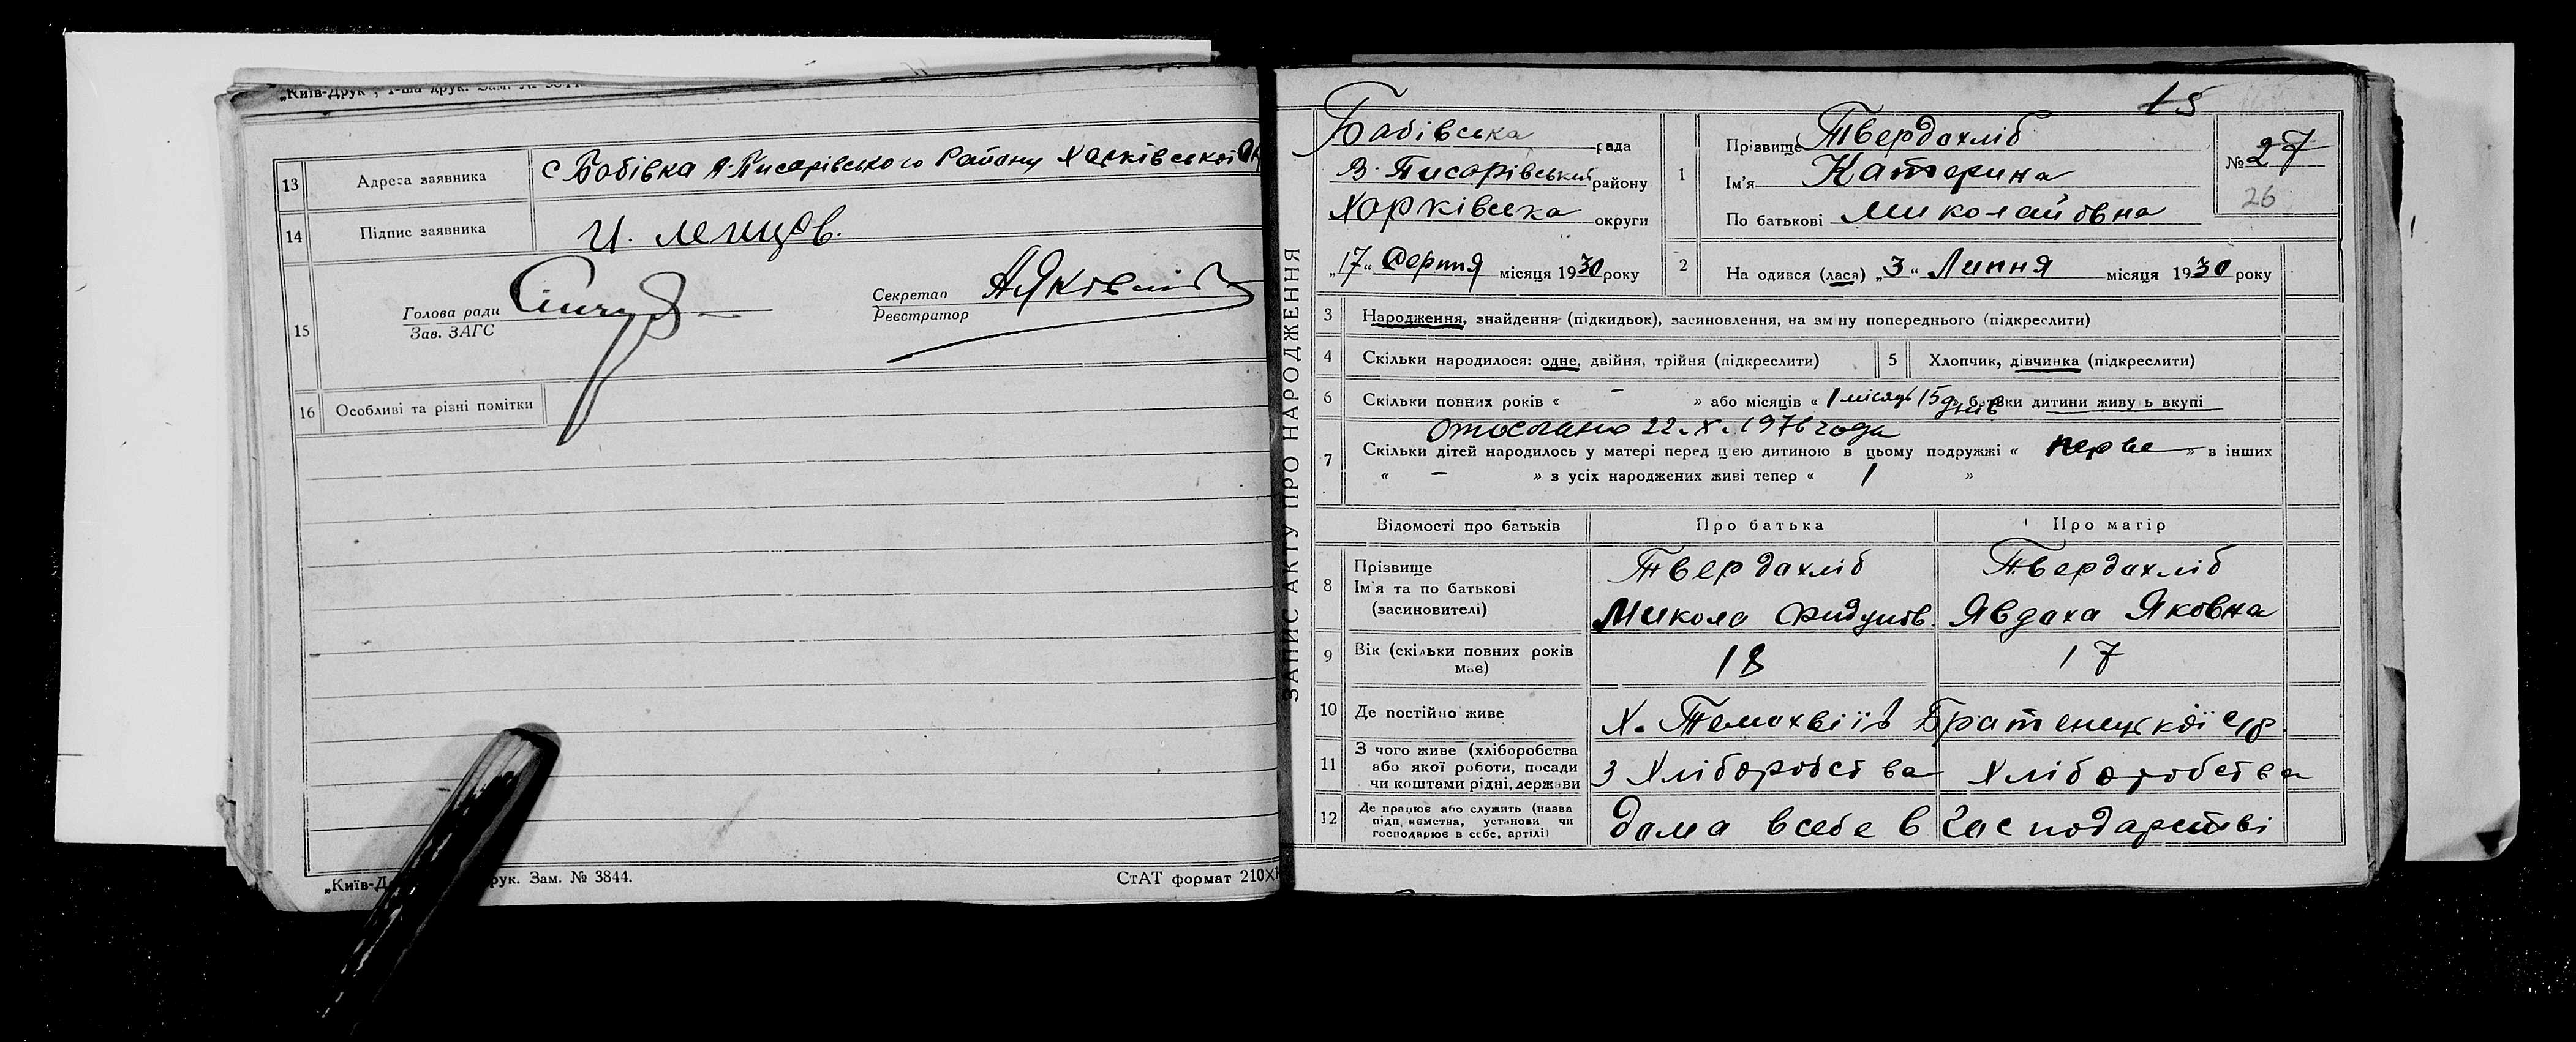 „Київ-Друк", 1-ша друк. Зам. № 3844.
13 Адреса заявника с Бабівка В-Писарівського Району Харківської Ок
14 Підпис заявника
15 Голова ради
Зав. ЗАГС
Секретар
Реєстратор
16 Особливі та різні помітки
„Київ-Д рук. Зам. № 3844.
СтАТ формат 210×1
ЗАПИС АКТУ ПРО НАРОДЖЕННЯ
15
Бабівська рада
В. Писарівський району
Харківська округи
„17" Серпня місяця 1930 року
1 Прізвище Твердахліб
Ім'я Катерина
По батькові Миколаївна
№ 27
26
2 На одився (лася) „3" Липня місяця 1930 року
3 Народження, знайдення (підкидьок), засиновлення, на зміну попереднього (підкреслити)
4 Скільки народилося: одне, двійня, трійня (підкреслити)
5 Хлопчик, дівчинка (підкреслити)
6 Скільки повних років « - » або місяців « 1 місяць 15 днів батьки дитини живуть вкупі
22. X. 1976 года
7 Скільки дітей народилось у матері перед цією дитиною в цьому подружжі « перве » в інших
« - » з усіх народжених живі тепер « 1 »
Відомості про батьків Про батька Про матір
8 Прізвище
Ім'я та по батькові
(засиновителі)
Твердахліб
Микола
Твердахліб
Явдаха Яковна
9 Вік (скільки повних років
має)
18
17
10 Де постійно живе Х. Братеницької с/р
11 З чого живе (хліборобства
або якої роботи, посади
чи коштами рідні, держави
З Хліборобства
Хліборобства
12 Де працює або служить (назва
підприємства, установи чи
господарює в себе, артілі)
дома в себе в Гасподарстві